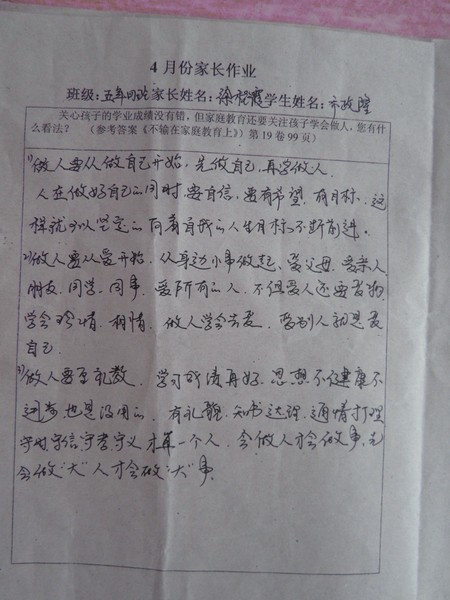 4 月份家长作业
班级:五年四班 家长姓名:徐 霞 学生姓名:市政隆
关心孩子的学业成绩没有错，但家庭教育还要关注孩子学会做人，您有什
么看法？ （参考答案《不输在家庭教育上》）第 19 卷 99 页）
1)做人要从做自己开始，先做自己，再学做人.
人在做好自己的同时，要自信，要有希望，有目标，这
样就可以坚定的向着自我的人生目标不断前进。
2)做人要从爱开始，从身边小事做起，爱父母，爱亲人
朋友，同学，同事，爱所有的人，不但爱人还要爱物
学会珍惜，相惜，做人学会去爱，爱别人就是爱
自己.
3)做人要重礼教，学习成绩再好，思想不健康不
进步也是没用的，有礼貌，知书达理，通情打理
守时守信，守孝，守义，才算一个人，会做人才会做事，
会做“大”人才会做“大”事.